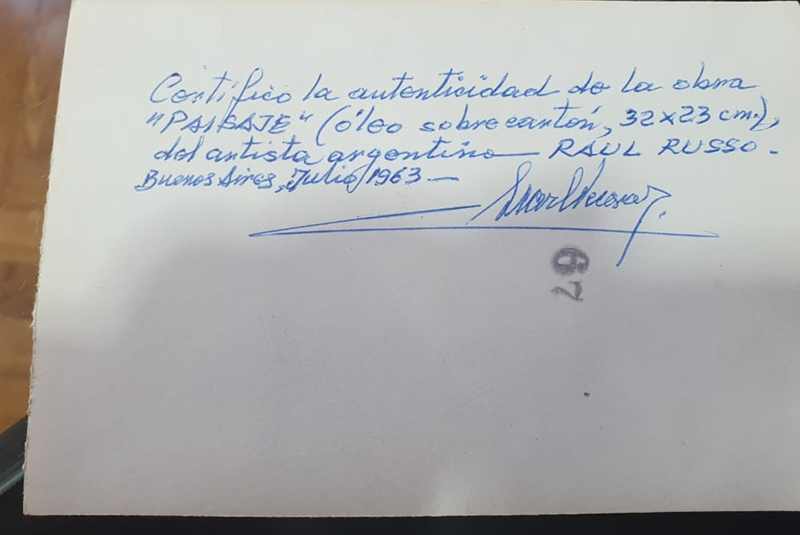 Certifico la autenticidad de la obra
"PAISAJE" (óleo sobre cartón, 32x23 cm.),
del artista argentino — RAÚL RUSSO -
Buenos Aires, Julio/1963 —
67